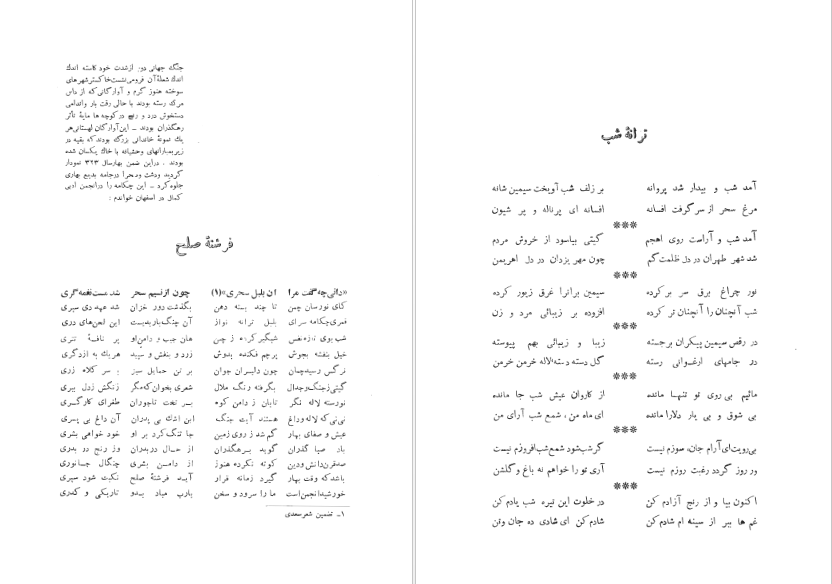 ترانهٔ شب
آمد شب و بیدار شد پروانه بر زلف شب آویخت سیمین شانه
مرغ سحر از سر گرفت افسانه افسانه ای پرناله و پر شیون
***
آمد شب و آراست روی اهجم گیتی بیاسود از خروش مردم
شد شهر طهران در دل ظلمت گم چون مهر یزدان در دل اهریمن
***
نور چراغ برق سر بر کرده سیمین برانرا غرق زیور کرده
شب آنچنان را آنچنان تر کرده افزوده بر زیبائی مرد و زن
***
در رقص سیمین پیکران برجسته زیبا و زیبائی بهم پیوسته
در جامهای ارغوانی رسته گل دسته دسته لاله خرمن خرمن
***
مائیم بی روی تو تنها مانده از کاروان عیش شب جا مانده
بی شوق و بی یار دلارا مانده ای ماه من ، شمع شب آرای من
***
بی‌رویت‌ای آرام جان، سوزم نیست گر شب‌شود شمع‌شب‌افروزم نیست
ور روز گردد رغبت روزم نیست آری تو را خواهم نه باغ و گلشن
***
اکنون بیا و از رنج آزادم کن در خلوت این تیره شب یادم‌کن
غم ها ببر از سینه ام شادم‌کن شادم‌کن ای شادی ده جان وتن
جنگ جهانی دوم ازشدت خود کاسته اندک
اندک شعلهٔ آن فرومی‌نشست‌خاکسترشهرهای
سوخته هنوز گرم و آوارگانی که از داس
مرگ رسته بودند با حالی رقت بار واندامی
دستخوش درد و رنج در کوچه ها مایهٔ تأثر
رهگذران بودند ـ این‌آوارگان لهستانی‌هر
یك نمونهٔ خاندانی بزرگ بودند که بقیه در
زیربمبارانهای وحشیانه با خاك یکسان شده
بودند . دراین ضمن بهارسال ۳۲۳ نمودار
گردید ودشت وصحرا درجامه بدیع بهاری
جلوه‌کرد ـ این چکامه را درانجمن ادبی
کمال در اصفهان خواندم :
فرشتهٔ صلح
«دانی‌چه‌گفت مرا آن بلبل سحری»(۱) چون ازنسیم سحر شد مست‌نغمه‌گری
کای نورسان چمن تا چند بسته دهن بگذشت دور خزان شد عهد دی سپری
قمری‌چکامه سرای بلبل ترانه نواز آن چنگ باربدیست این لحن‌های دری
شب بوی تازه‌نفس شبگیر کرده ز چین هان جیب و دامن‌او پر نافهٔ تتری
خیل بنفشه بجوش پرچم فکنده بدوش زرد و بنفش و سپید هریك به ازدگری
نرگس رسیدچمان چون دلبران جوان بر تن حمایل سبز بر سر کلاه زری
گیتی‌زجنگ‌وجدال بگرفته رنگ ملال شعری بخوان‌که‌مگر زنگش زدل ببری
نورسته لاله نگر تابان ز دامن کوه بر تخت تاجوران طغرای کارگری
نی‌نی‌که لاله وداغ هستند آیت جنگ این اشك بی پدران آن داغ بی پسری
عیش و صفای بهار گم شد ز روی زمین جا تنگ‌کرد بر او خود خواهی بشری
باد صبا گذران گوید برهگذران از حال دربدران وز رنج در بدری
صدقرن‌دانش‌ودین کوته نکرده هنوز از دامن بشری چنگال جانوری
باشدکه وقت بهار گیرد زمانه قرار آید فرشتهٔ صلح نکبت شود سپری
خورشیدانجمن‌است ما را سرود و سخن یارب مباد بدو تاریکی و کدری
۱ـ تضمین شعرسعدی